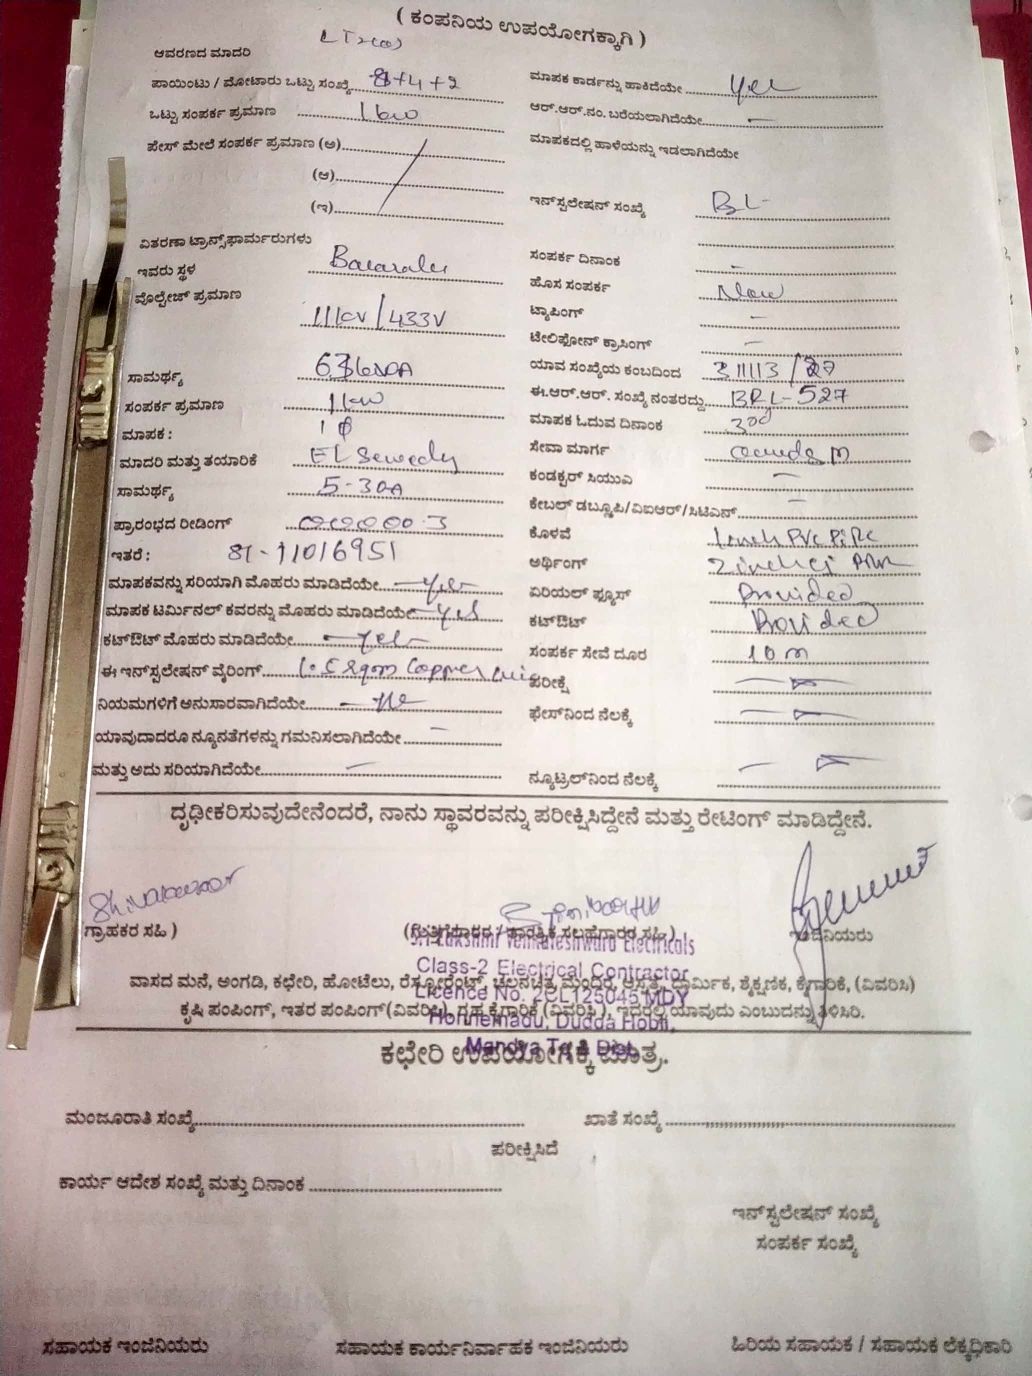 ( ಕಂಪನಿಯ ಉಪಯೋಗಕ್ಕಾಗಿ )
ಆವರಣದ ಮಾದರಿ LT2(a)
ಪಾಯಿಂಟು / ಮೋಟಾರು ಒಟ್ಟು ಸಂಖ್ಯೆ 8+4+2
ಮಾಪಕ ಕಾರ್ಡನ್ನು ಹಾಕಿದೆಯೇ Yes
ಒಟ್ಟು ಸಂಪರ್ಕ ಪ್ರಮಾಣ 1 kw
ಆರ್.ಆರ್.ನಂ. ಬರೆಯಲಾಗಿದೆಯೇ —
ಪೇಸ್ ಮೇಲೆ ಸಂಪರ್ಕ ಪ್ರಮಾಣ (ಅ)
ಮಾಪಕದಲ್ಲಿ ಹಾಳೆಯನ್ನು ಇಡಲಾಗಿದೆಯೇ
(ಆ)
(ಇ)
ಇನ್‌ಸ್ಟಲೇಷನ್ ಸಂಖ್ಯೆ BL
ವಿತರಣಾ ಟ್ರಾನ್ಸ್‌ಫಾರ್ಮರುಗಳು
ಇವರು ಸ್ಥಳ
ಸಂಪರ್ಕ ದಿನಾಂಕ –
ವೊಲ್ಟೇಜ್ ಪ್ರಮಾಣ 11kv/433V
ಹೊಸ ಸಂಪರ್ಕ New
ಟ್ಯಾಪಿಂಗ್ –
ಟೇಲಿಫೋನ್ ಕ್ರಾಸಿಂಗ್ –
ಸಾಮರ್ಥ್ಯ
ಯಾವ ಸಂಖ್ಯೆಯ ಕಂಬದಿಂದ
ಸಂಪರ್ಕ ಪ್ರಮಾಣ 1 kw
ಈ.ಆರ್.ಆರ್. ಸಂಖ್ಯೆ ನಂತರದ್ದು BRL-527
ಮಾಪಕ : 1 ф
ಮಾಪಕ ಓದುವ ದಿನಾಂಕ 3rd
ಮಾದರಿ ಮತ್ತು ತಯಾರಿಕೆ EL Sewedy
ಸೇವಾ ಮಾರ್ಗ
ಸಾಮರ್ಥ್ಯ 5-30A
ಕಂಡಕ್ಟರ್ ಸಿಯುವಿ –
ಕೇಬಲ್ ಡಬ್ಲೂಪಿ/ಎಐಆರ್/ಸಿಟಿಎನ್ –
ಪ್ರಾರಂಭದ ರೀಡಿಂಗ್ 000000.3
ಕೊಳವೆ 1 inch PVC Pipe
ಇತರೆ : 81-11016951
ಅರ್ಥಿಂಗ್
ಮಾಪಕವನ್ನು ಸರಿಯಾಗಿ ಮೊಹರು ಮಾಡಿದೆಯೇ Yes
ಏರಿಯಲ್ ಫ್ಯೂಸ್ Provided
ಮಾಪಕ ಟರ್ಮಿನಲ್ ಕವರನ್ನು ಮೊಹರು ಮಾಡಿದೆಯೇ Yes
ಕಟ್‌ಔಟ್ Provided
ಕಟ್‌ಔಟ್ ಮೊಹರು ಮಾಡಿದೆಯೇ Yes
ಸಂಪರ್ಕ ಸೇವೆ ದೂರ 10 m
ಈ ಇನ್‌ಸ್ಟಲೇಷನ್ ವೈರಿಂಗ್ 1.5 Sqmm Copper wire
ಪರೀಕ್ಷೆ
ನಿಯಮಗಳಿಗೆ ಅನುಸಾರವಾಗಿದೆಯೇ Yes
ಫೇಸ್‌ನಿಂದ ನೆಲಕ್ಕೆ
ಯಾವುದಾದರೂ ನ್ಯೂನತೆಗಳನ್ನು ಗಮನಿಸಲಾಗಿದೆಯೇ –
ಮತ್ತು ಅದು ಸರಿಯಾಗಿದೆಯೇ –
ನ್ಯೂಟ್ರಲ್‌ನಿಂದ ನೆಲಕ್ಕೆ
ದೃಢೀಕರಿಸುವುದೇನೆಂದರೆ, ನಾನು ಸ್ಥಾವರವನ್ನು ಪರೀಕ್ಷಿಸಿದ್ದೇನೆ ಮತ್ತು ರೇಟಿಂಗ್ ಮಾಡಿದ್ದೇನೆ.
ಗ್ರಾಹಕರ ಸಹಿ )
(ಗುತ್ತಿಗೆದಾರರ / ತಾಂತ್ರಿಕ ಸಲಹೆಗಾರರ ಸಹಿ )
ಇಂಜಿನಿಯರು
Sri Lakshmi Venkateshwara Electricals
Class-2 Electrical Contractor
ವಾಸದ ಮನೆ, ಅಂಗಡಿ, ಕಛೇರಿ, ಹೋಟೆಲು, ರೆಸ್ಟೋರೆಂಟ್, ಚಲನಚಿತ್ರ ಮಂದಿರ, ಆಸ್ಪತ್ರೆ, ಧಾರ್ಮಿಕ, ಶೈಕ್ಷಣಿಕ, ಕೈಗಾರಿಕೆ, (ವಿವರಿಸಿ)
Licence No. 2CL125045 MDY
ಕೃಷಿ ಪಂಪಿಂಗ್, ಇತರ ಪಂಪಿಂಗ್ (ವಿವರಿಸಿ), ಗೃಹ ಕೈಗಾರಿಕೆ (ವಿವರಿಸಿ ), ಇದರಲ್ಲಿ ಯಾವುದು ಎಂಬುದನ್ನು ತಿಳಿಸಿರಿ.
Honnemadu, Dudda Hobli,
Mandya Tq & Dist.
ಕಛೇರಿ ಉಪಯೋಗಕ್ಕೆ ಮಾತ್ರ.
ಮಂಜೂರಾತಿ ಸಂಖ್ಯೆ
ಖಾತೆ ಸಂಖ್ಯೆ
ಪರೀಕ್ಷಿಸಿದೆ
ಕಾರ್ಯ ಆದೇಶ ಸಂಖ್ಯೆ ಮತ್ತು ದಿನಾಂಕ
ಇನ್‌ಸ್ಟಲೇಷನ್ ಸಂಖ್ಯೆ
ಸಂಪರ್ಕ ಸಂಖ್ಯೆ
ಸಹಾಯಕ ಇಂಜಿನಿಯರು
ಸಹಾಯಕ ಕಾರ್ಯನಿರ್ವಾಹಕ ಇಂಜಿನಿಯರು
ಹಿರಿಯ ಸಹಾಯಕ / ಸಹಾಯಕ ಲೆಕ್ಕಾಧಿಕಾರಿ